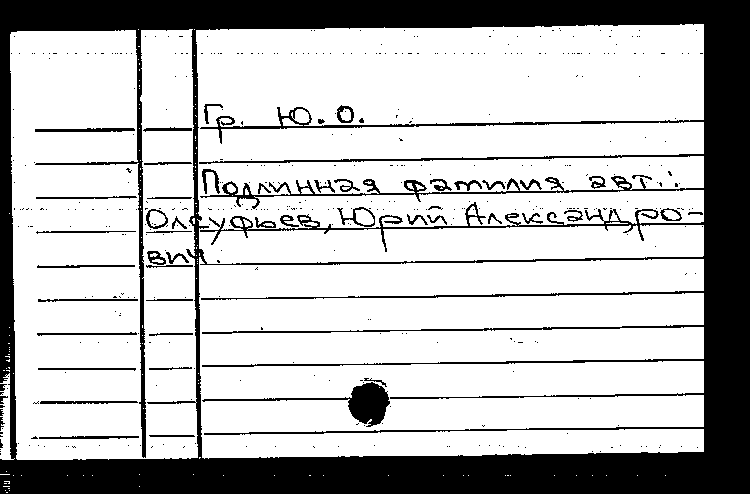 Гр. Ю.О.
Подлинная фамилия авт.:
Олсуфьев, Юрий Александро-
вич.